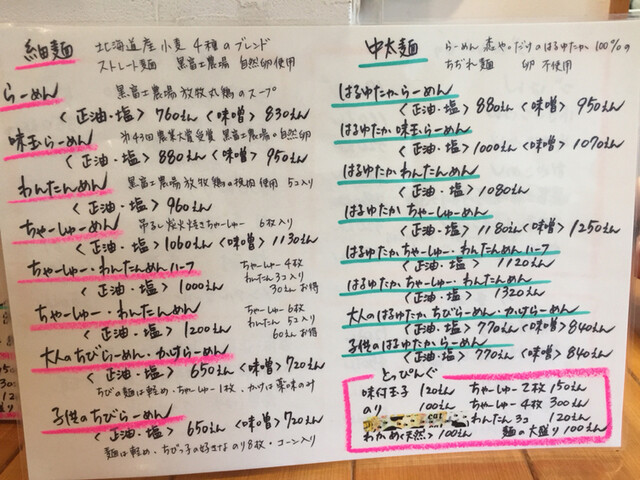 細麺 北海道産小麦4種のブレンド
ストレート麺 黒富士農場 自然卵使用
らーめん 黒富士農場放牧丸鶏のスープ
＜正油・塩＞760えん＜味噌＞830えん
味玉らーめん 第43回農業大賞受賞 黒富士農場の自然卵
＜正油・塩＞880えん＜味噌＞950えん
わんたんめん 黒富士農場放牧鶏の挽肉使用 5コ入り
＜正油・塩＞960えん
ちゃーしゅーめん 吊るし炭火焼きちゃーしゅー 6枚入り
＜正油・塩＞1060えん＜味噌＞1130えん
ちゃーしゅー・わんたんめんハーフ ちゃーしゅー4枚
わんたん3コ入り
＜正油・塩＞1000えん 30えんお得
ちゃーしゅー・わんたんめん ちゃーしゅー6枚
わんたん5コ入り
＜正油・塩＞1200えん 60えんお得
大人のちびらーめん・かけらーめん
＜正油・塩＞650えん＜味噌＞720えん
ちびの麺は軽め・ちゃーしゅー1枚、かけは薬味のみ
子供のちびらーめん
＜正油・塩＞650えん＜味噌＞720えん
麺は軽め、ちびっ子の好きなのり8枚・コーン入り
中太麺 らーめん 恋や。だけのはるゆたか100%の
ちぢれ麺 卵不使用
はるゆたからーめん
＜正油・塩＞880えん＜味噌＞950えん
はるゆたか味玉らーめん
＜正油・塩＞1000えん＜味噌＞1070えん
はるゆたかわんたんめん
＜正油・塩＞1080えん
はるゆたかちゃーしゅーめん
＜正油・塩＞1180えん＜味噌＞1250えん
はるゆたかちゃーしゅー・わんたんめんハーフ
＜正油・塩＞1120えん
はるゆたかちゃーしゅー・わんたんめん
＜正油・塩＞1320えん
大人のはるゆたかちびらーめん・かけらーめん
＜正油・塩＞770えん＜味噌＞840えん
子供のはるゆたからーめん
＜正油・塩＞770えん＜味噌＞840えん
とっぴんぐ
味付玉子 120えん ちゃーしゅー2枚 150えん
のり 100えん ちゃーしゅー4枚 300えん
わんたん3コ 120えん
わかめ＜天然＞100えん 麺の大盛り100えん